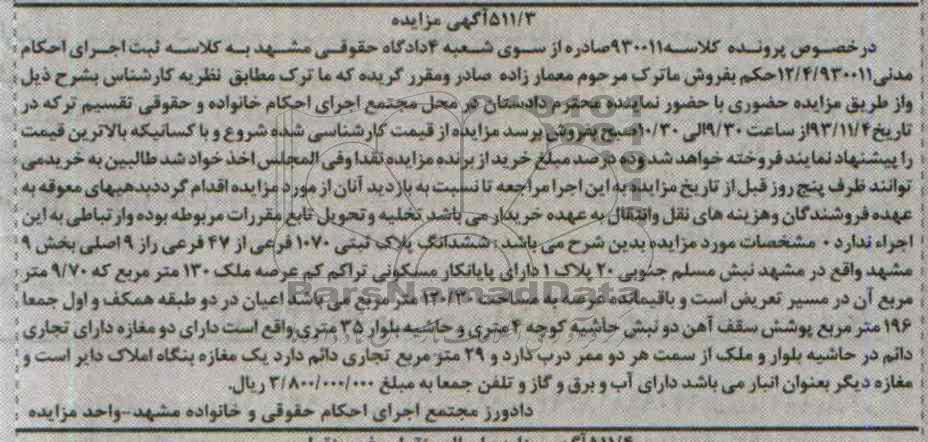 ۵۱۱/۳آگهی مزایده
درخصوص پرونده کلاسه۹۳۰۰۱۱صادره از سوی شعبه ۴دادگاه حقوقی مشهد به کلاسه ثبت اجرای احکام
مدنی۱۲/۴/۹۳۰۰۱۱حکم بفروش ماترک مرحوم معمار زاده صادر ومقرر گریده که ما ترک مطابق نظریه کارشناس بشرح ذیل
واز طریق مزایده حضوری با حضور نماینده محترم دادستان در محل مجتمع اجرای احکام خانواده و حقوقی تقسیم ترکه در
تاریخ۹۳/۱۱/۴از ساعت ۹/۳۰الی ۱۰/۳۰صبح بفروش برسد مزایده از قیمت کارشناسی شده شروع و با کسانیکه بالاترین قیمت
را پیشنهاد نمایند فروخته خواهد شد وده درصد مبلغ خرید از برنده مزایده نقدا وفی المجلس اخذ خواد شد طالبین به خرید می
توانند ظرف پنج روز قبل از تاریخ مزایده به این اجرا مراجعه تا نسبت به بازدید آنان از مورد مزایده اقدام گرددبدهیهای معوقه به
عهده فروشندگان وهزینه های نقل وانتقال به عهده خریدار می باشد تخلیه وتحویل تابع مقررات مربوطه بوده وارتباطی به این
اجراء ندارد۰ مشخصات مورد مزایده بدین شرح می باشد: ششدانگ پلاک ثبتی ۱۰۷۰ فرعی از ۴۷ فرعی راز ۹ اصلی بخش ۹
مشهد واقع در مشهد نبش مسلم جنوبی ۲۰ پلاک ۱ دارای پایانکار مسکونی تراکم کم عرصه ملک ۱۳۰ متر مربع که ۹/۷۰ متر
مربع آن در مسیر تعریض است و باقیمانده عرصه به مساحت ۱۲۰/۳۰ متر مربع می باشد اعیان در دو طبقه همکف و اول جمعا
۱۹۶ متر مربع پوشش سقف آهن دو نبش حاشیه کوچه ۴ متری و حاشیه بلوار ۳۵ متری واقع است دارای دو مغازه دارای تجاری
دائم در حاشیه بلوار و ملک از سمت هر دو ممر درب دارد و ۲۹ متر مربع تجاری دائم دارد یک مغازه بنگاه املاک دایر است و
مغازه دیگر بعنوان انبار می باشد دارای آب و برق و گاز و تلفن جمعا به مبلغ ۳/۸۰۰/۰۰۰/۰۰۰ ریال.
دادورز مجتمع اجرای احکام حقوقی و خانواده مشهد-واحد مزایده
ParsNamadData